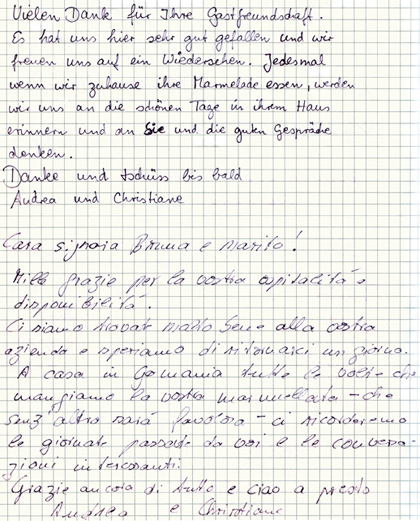 Vielen Dank für Ihre Gastfreundschaft.
Es hat uns hier sehr gut gefallen und wir
freuen uns auf ein Wiedersehen. Jedesmal
wenn wir zuhause ihre Marmelade essen, werden
wir uns an die schönen Tage in ihrem Haus
erinnern und an Sie und die guten Gespräche
denken.
Danke und tschüss bis bald
Andrea und Christiane
Cara signora Bruna e marito!
Mille grazie per la vostra ospitalità e
disponibilità.
Ci siamo trovate molto bene alla vostra
azienda e speriamo di ritornarci un giorno.
A casa in Germania tutte le volte che
mangiamo la vostra marmellata - che
senz'altro sarà favolosa - ci ricorderemo
le giornate passate da voi e le conversa-
zioni interessanti.
Grazie ancora di tutto e ciao a presto
Andrea e Christiane